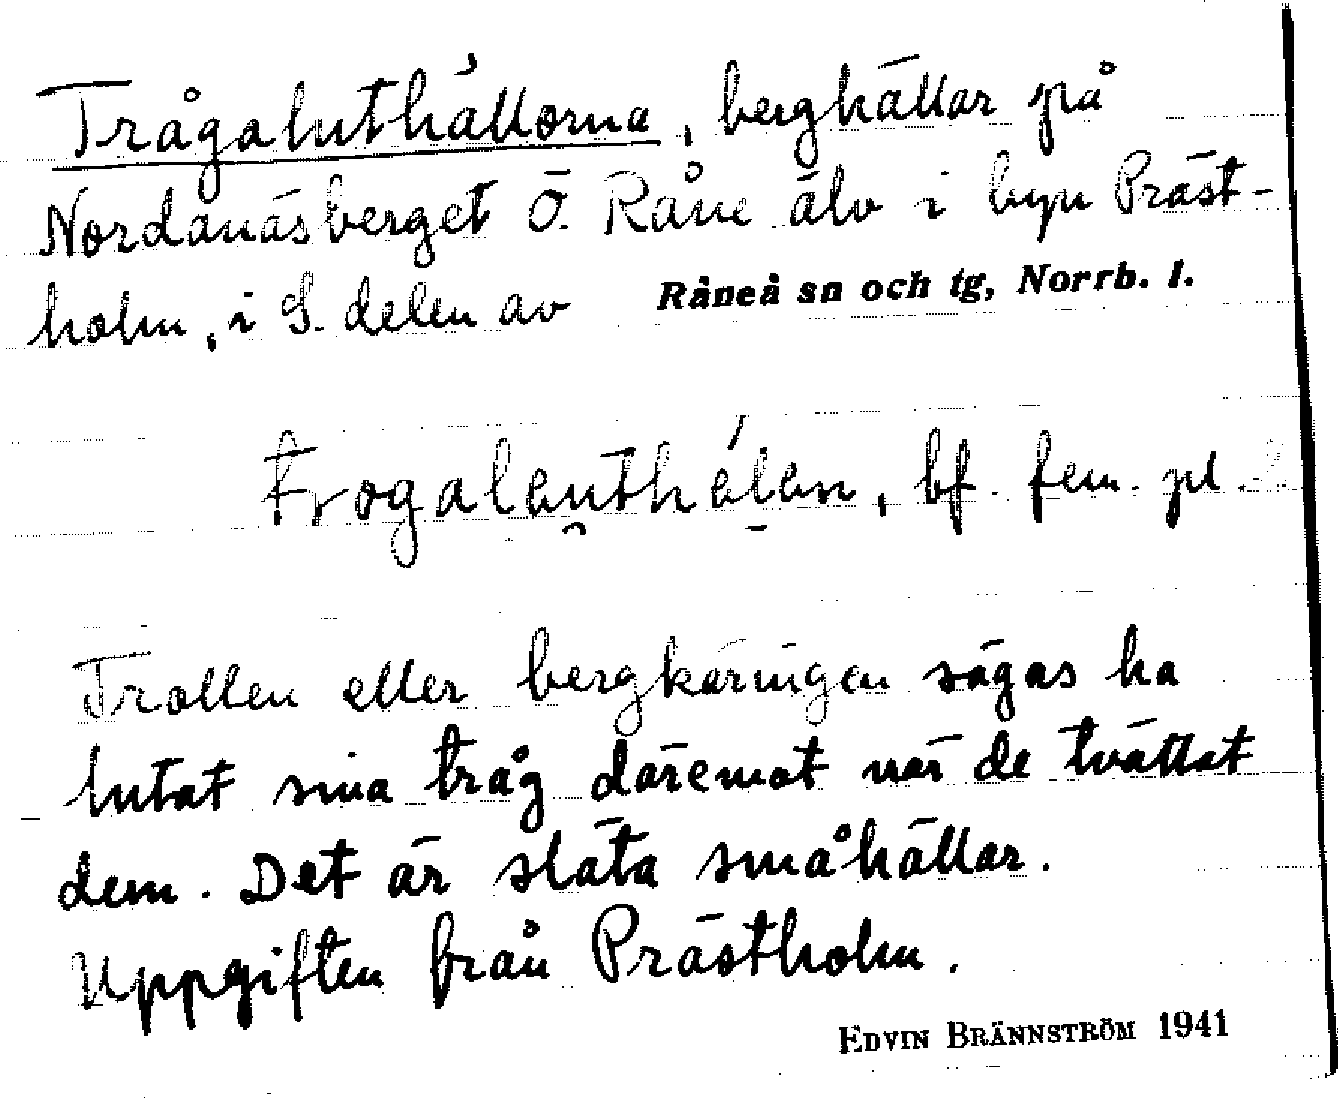 Trågaluthällorna, berghällar på
Nordanäsberget Ö. Råne älv i byn Präst-
holm, i S. delen av Råneå sn och tg, Norrb. l.
bf. fem. pl.
Trollen eller bergkäringen sägas ha
lutat sina tråg däremot när de tvättat
dem. Det är släta småhällar.
Uppgiften från Prästholm.
EDVIN BRÄNNSTRÖM 1941